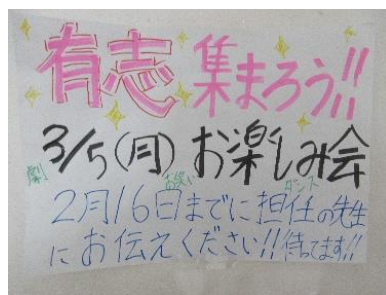 有志 集まろう!!
3/5(月) お楽しみ会
劇 お笑い ダンス
2月16日までに担任の先生
にお伝えください!!待ってます!!